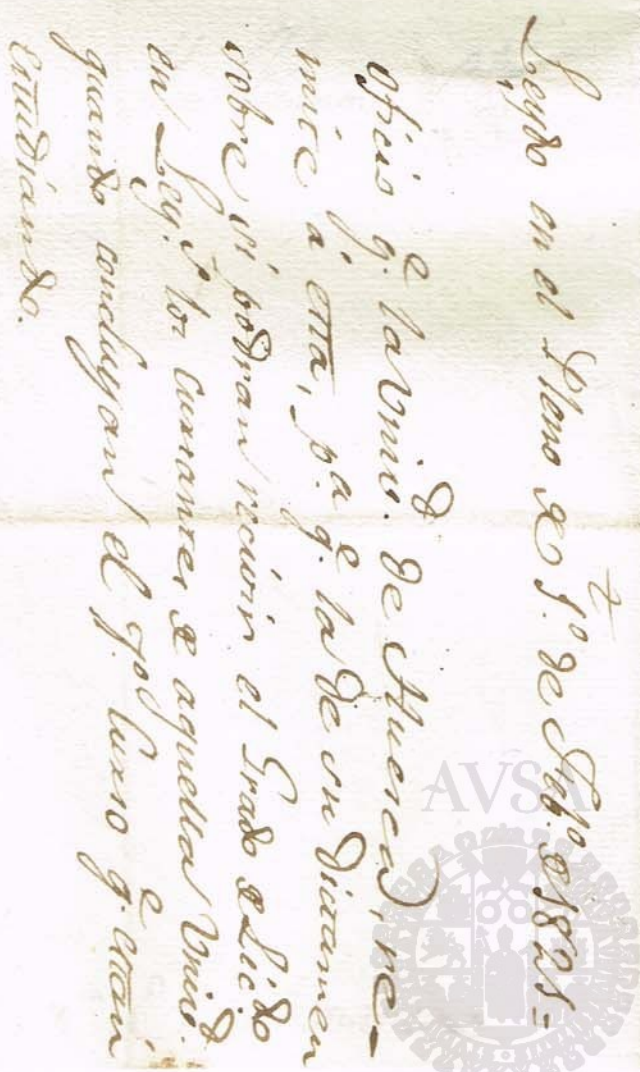 2
Leydo en el Pleno de 1.º de Feb.º de 1825=
oficio q.e la Univ.d de Huesca, re-
mite a esta, p.a q.e la de su Dictamen
sobre si podran recivir el Grado de Lic.do
en Ley.s los Cursantes de aquella Univ.d
quando concluyan el 7.º Curso q.e estan
Estudiando.
AVSA